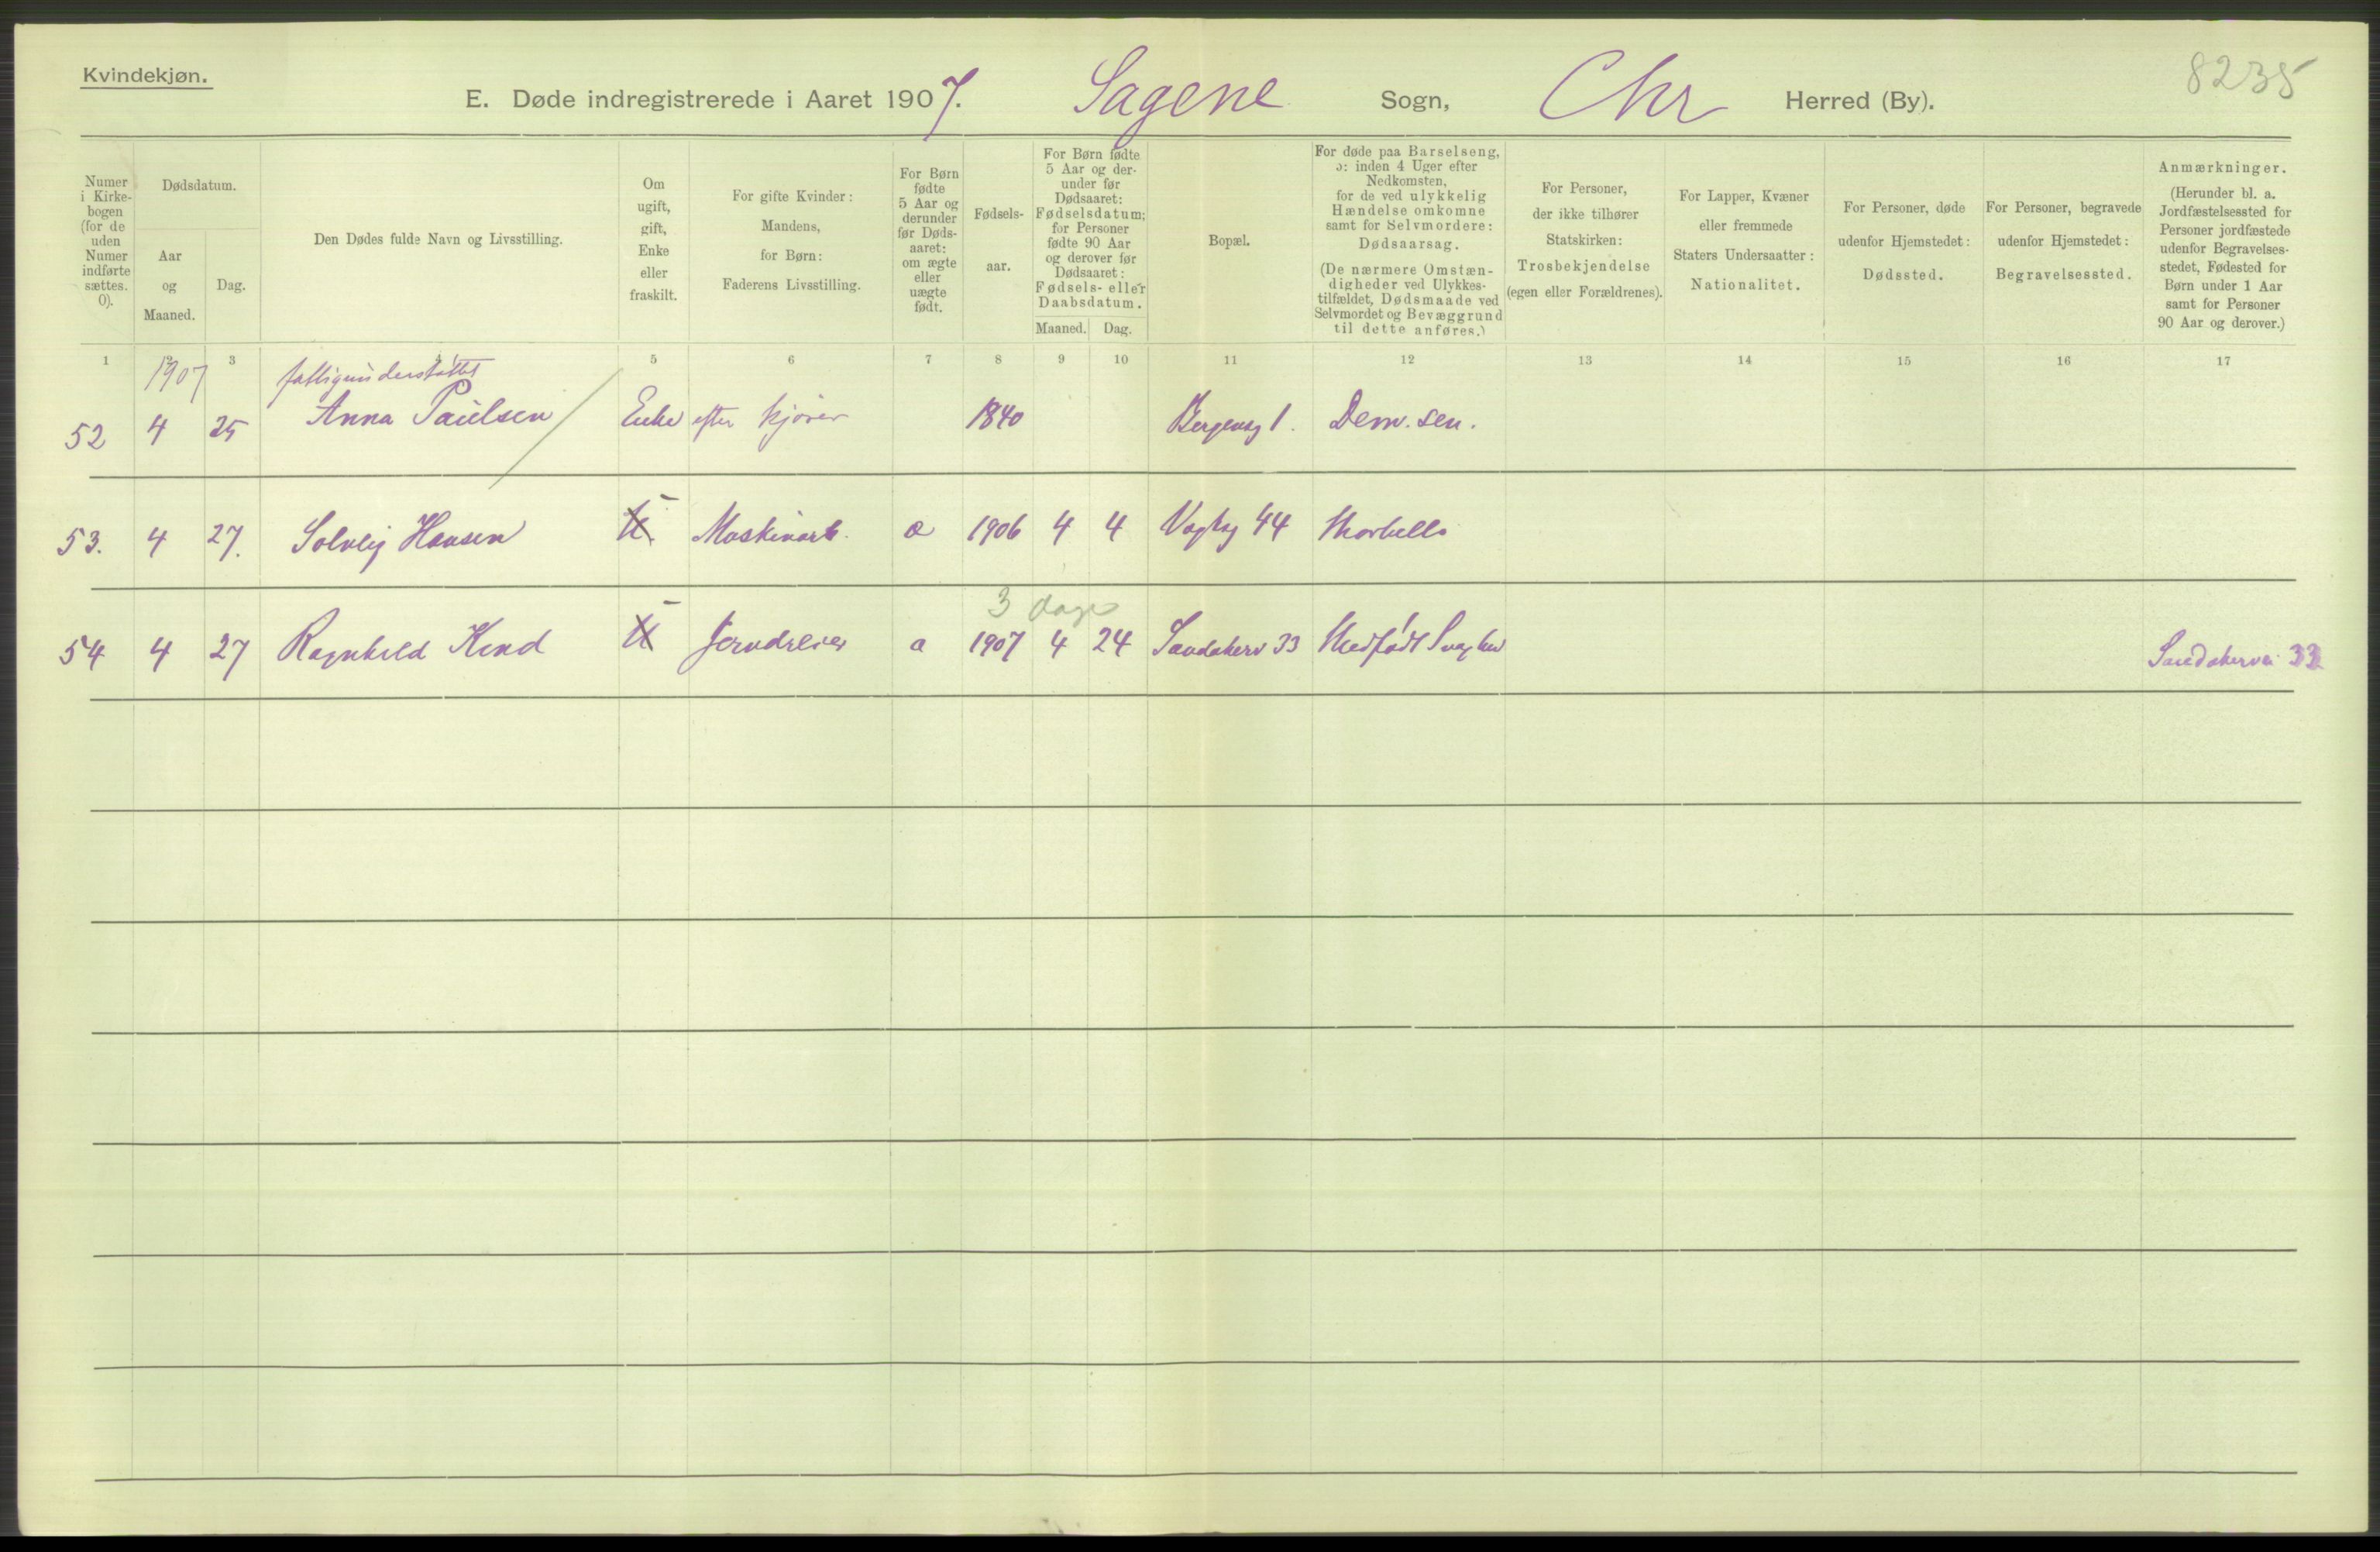 Kvindekjøn.
8235
E. Døde indregistrerede i Aaret 1907. Sagene Sogn, Chr Herred (By).
Numer i Kirke-bogen (for de uden Numer indførte sættes. O).
Dødsdatum.
Aar og Maaned.
Dag.
Den Dødes fulde Navn og Livsstilling.
Om ugift, gift, Enke eller fraskilt.
For gifte Kvinder: Mandens, for Børn: Faderens Livsstilling.
For Børn fødte 5 Aar og derunder før Døds-aaret: om ægte eller uægte født.
Fødsels-aar.
For Børn fødte 5 Aar og der-under før Dødsaaret: Fødselsdatum; for Personer fødte 90 Aar og derover før Dødsaaret: Fødsels- eller Daabsdatum.
Maaned. Dag.
Bopæl.
For døde paa Barselseng, ɔ: inden 4 Uger efter Nedkomsten, for de ved ulykkelig Hændelse omkomne samt for Selvmordere: Dødsaarsag.
(De nærmere Omstæn-digheder ved Ulykkes-tilfældet, Dødsmaade ved Selvmordet og Bevæggrund til dette anføres.)
For Personer, der ikke tilhører Statskirken: Trosbekjendelse (egen eller Forældrenes).
For Lapper, Kvæner eller fremmede Staters Undersaatter: Nationalitet.
For Personer, døde udenfor Hjemstedet: Dødssted.
For Personer, begravede udenfor Hjemstedet: Begravelsessted.
Anmærkninger.
(Herunder bl. a. Jordfæstelsessted for Personer jordfæstede udenfor Begravelses-stedet, Fødested for Børn under 1 Aar samt for Personer 90 Aar og derover.)
1 3 5 6 7 8 9 10 11 12 13 14 15 16 17
1907 fattigunderstøttet
52 4 25 Anna Paulsen Enke efter kjører 1840 Bergensg 1. Dem. sen.
53. 4 27. Solveig Hansen U. Maskinarb. æ 1906 4 4 44
3 dage
54 4 27 Ragnhild Kind U Jerndreier æ 1907 4 24 Sandakerv 33 Medfødt Svaghed Sandakervei 33